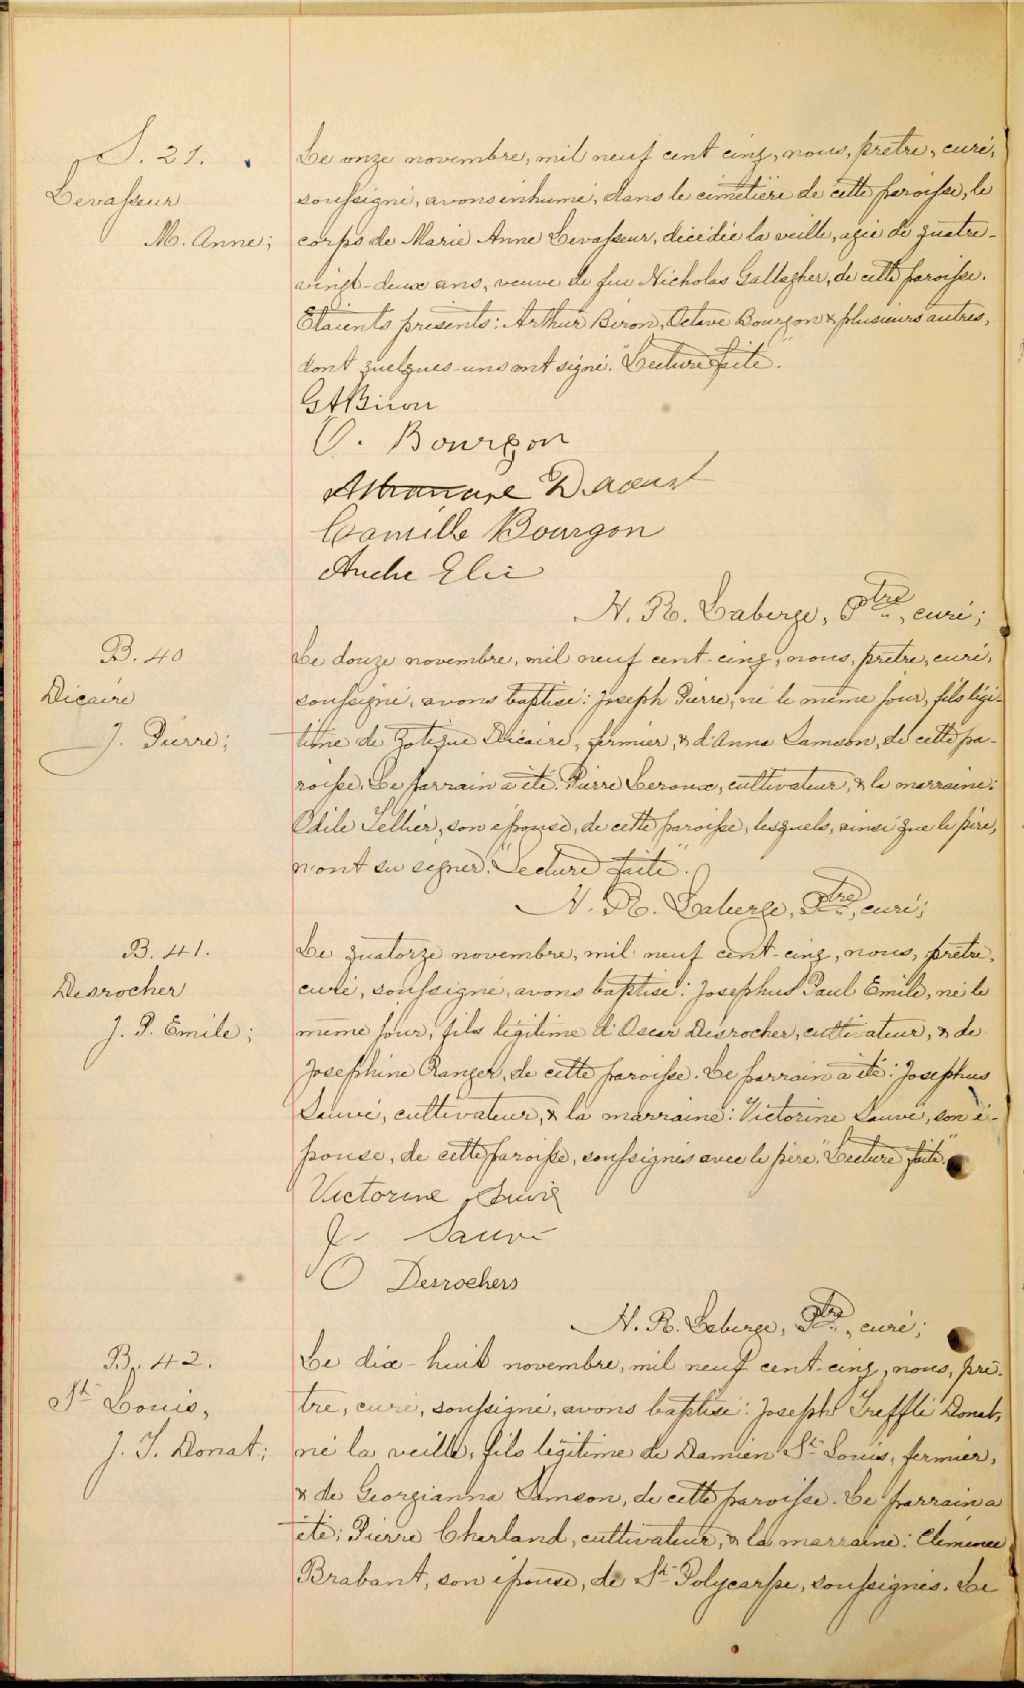 S. 21.
Levasseur
M. Anne;
Le onze novembre, mil neuf cent cinq, nous, prêtre, curé,
soussigné, avons inhumé, dans le cimetière de cette paroisse, le
corps de Marie Anne Levasseur, décédée la veille, agée de quatre-
vingt-deux ans, veuve de feu Nicholas Gallagher, de cette paroisse.
Étaients présents: Arthur Biron, Octave Bourgon & plusieurs autres,
dont quelques-uns ont signé. "Lecture faite".
G A Biron
O. Bourgon
Daoust
Camille Bourgon
Andre Elie
H. R. Laberge, Ptre, curé;
B. 40
Dicaire
J. Pierre;
Le douze novembre, mil neuf cent-cinq, nous, prêtre, curé,
soussigné, avons baptisé: Joseph Pierre, né le même jour, fils légi-
time de Zotique Dicaire, fermier, & d'Anna Samson, de cette pa-
roisse. Le parrain a été: Pierre Leroux, cultivateur, & la marraine:
Odile Tellier, son épouse, de cette paroisse, lesquels, ainsi que le père,
n'ont su signer. "Lecture faite".
H. R. Laberge, Ptre, curé;
B. 41.
Desrocher
J. P. Emile;
Le quatorze novembre, mil neuf cent-cinq, nous, prêtre,
curé, soussigné, avons baptisé: Josephus Paul Emile, né le
même jour, fils légitime d'Oscar Desrocher, cultivateur, & de
Josephine Ranger, de cette paroisse. Le parrain a été: Josephus
Sauvé, cultivateur, & la marraine: Victorine Sauvé, son é-
pouse, de cette paroisse, soussignés avec le père. "Lecture faite."
Victorine Sauvé
J Sauvé
O Desrochers
H. R. Laberge, Ptre, curé;
B. 42.
St Louis,
J. T. Donat;
Le dix-huit novembre, mil neuf cent-cinq, nous, prê-
tre, curé, soussigné, avons baptisé: Joseph Trefflé Donat,
né la veille, fils légitime de Damien St Louis, fermier,
& de Georgianna Samson, de cette paroisse. Le parrain a
été: Pierre Charland, cultivateur, & la marraine: Clémence
Brabant, son épouse, de St Polycarpe, soussignés. Le